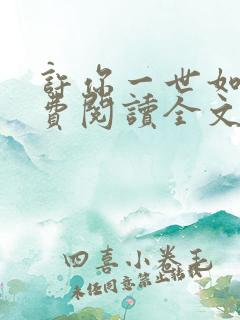 許你一世如
費閱讀全文
四喜小卷毛
未经同意禁止转载